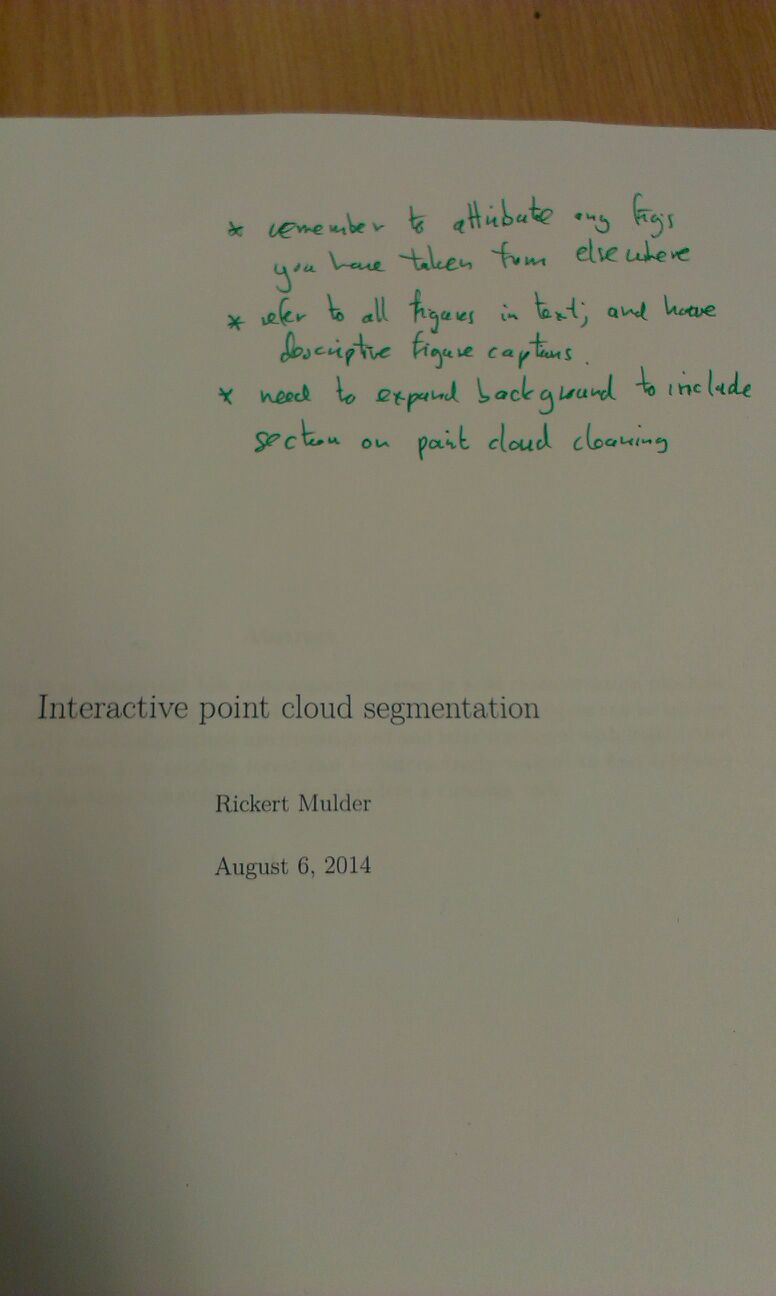 * remember to attribute any figs
you have taken from elsewhere
* refer to all figures in text; and have
descriptive figure captions.
* need to expand background to include
section on point cloud cleaning
Abstract
Interactive point cloud segmentation
Rickert Mulder
August 6, 2014